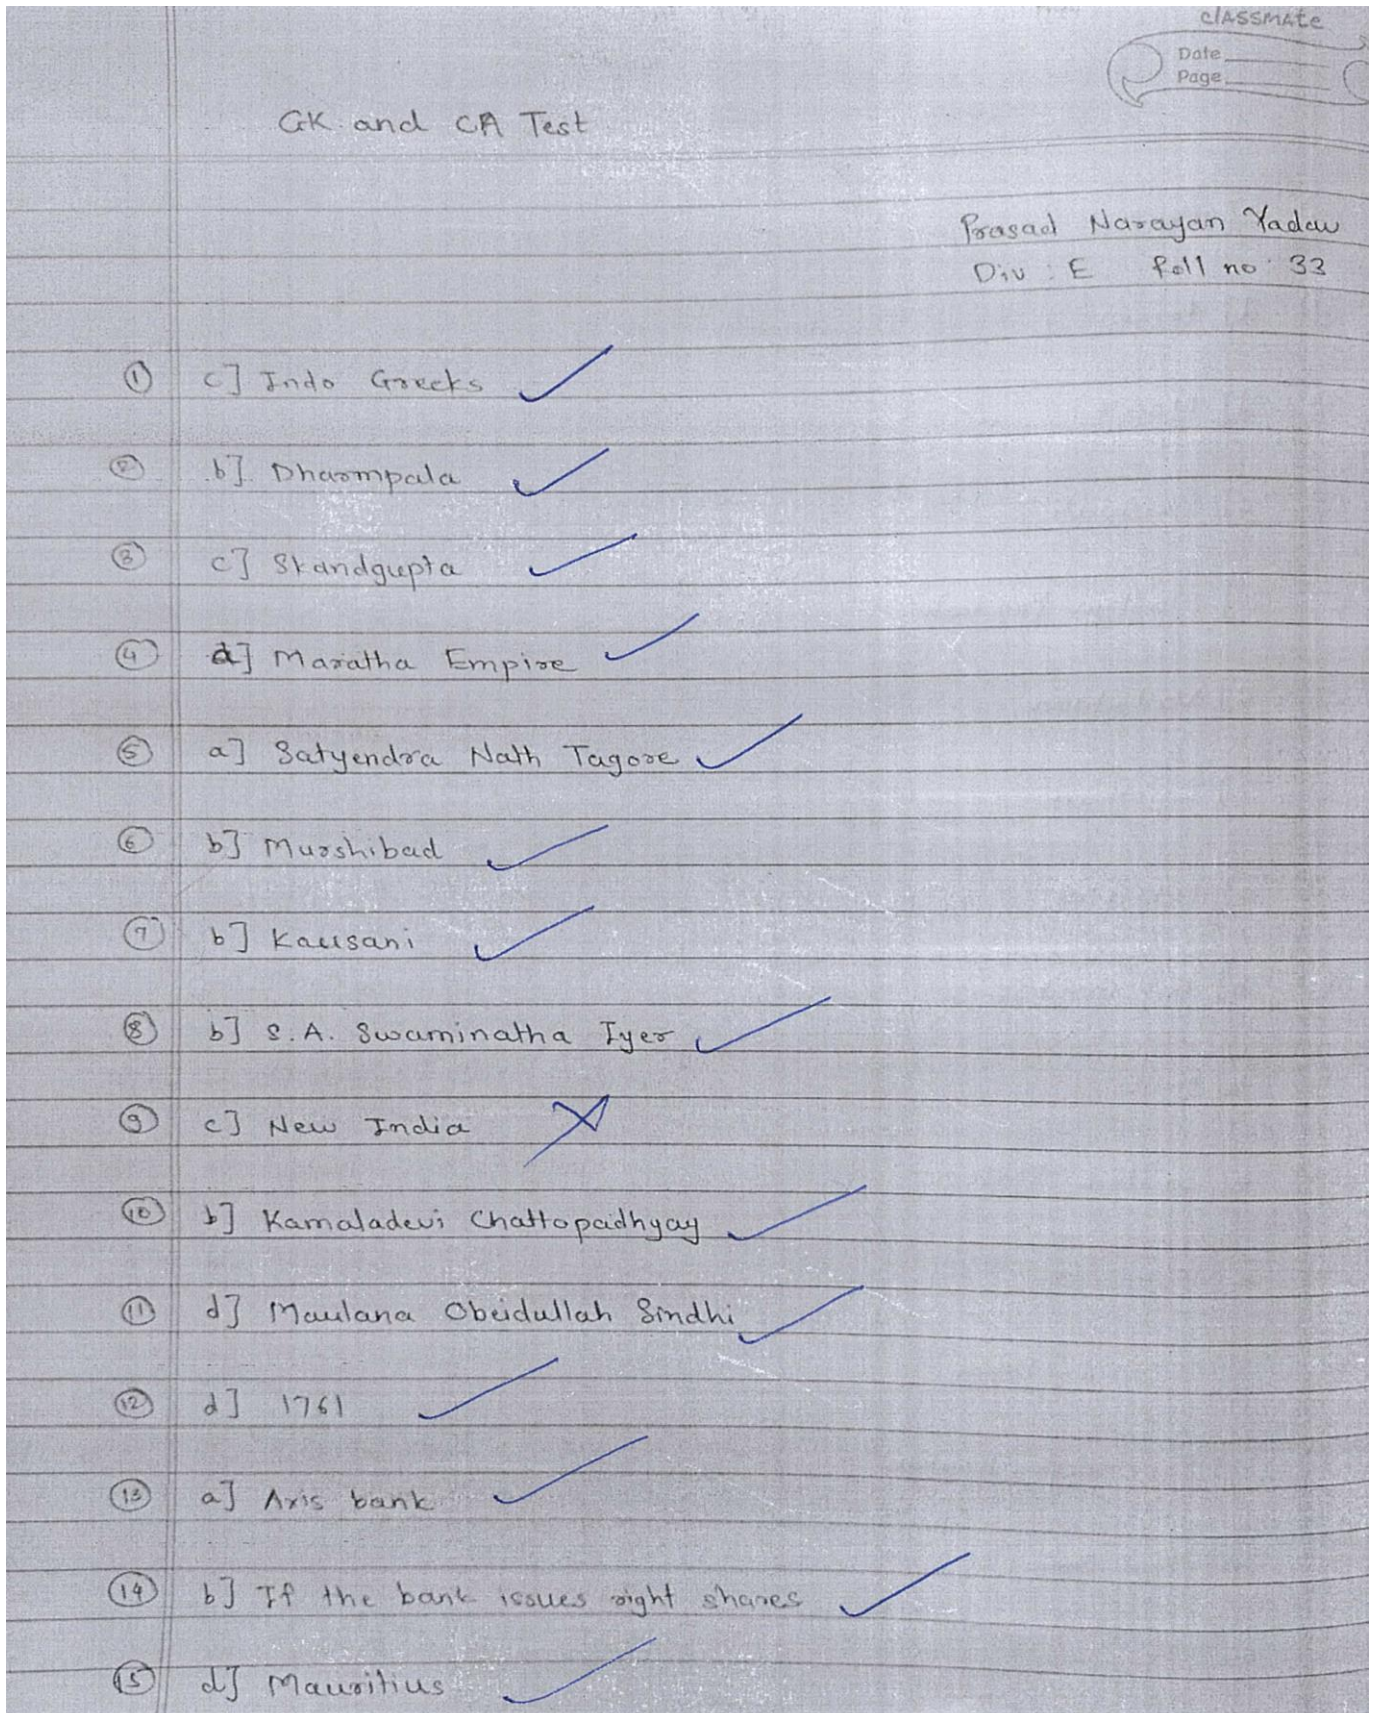 classmate
Date
Page
GK and CA Test
Prasad Narayan Yadav
Div : E Roll no : 33
① c] Indo Greeks
② b] Dharmpala
③ c] Skandgupta
④ d] Maratha Empire
⑤ a] Satyendra Nath Tagore
⑥ b] Murshibad
⑦ b] Kausani
⑧ b] S.A. Swaminatha Iyer
⑨ c] New India
⑩ b] Kamaladevi Chattopadhyay
⑪ d] Maulana Obeidullah Sindhi
⑫ d] 1761
⑬ a] Axis bank
⑭ b] If the bank issues right shares
⑮ d] Mauritius